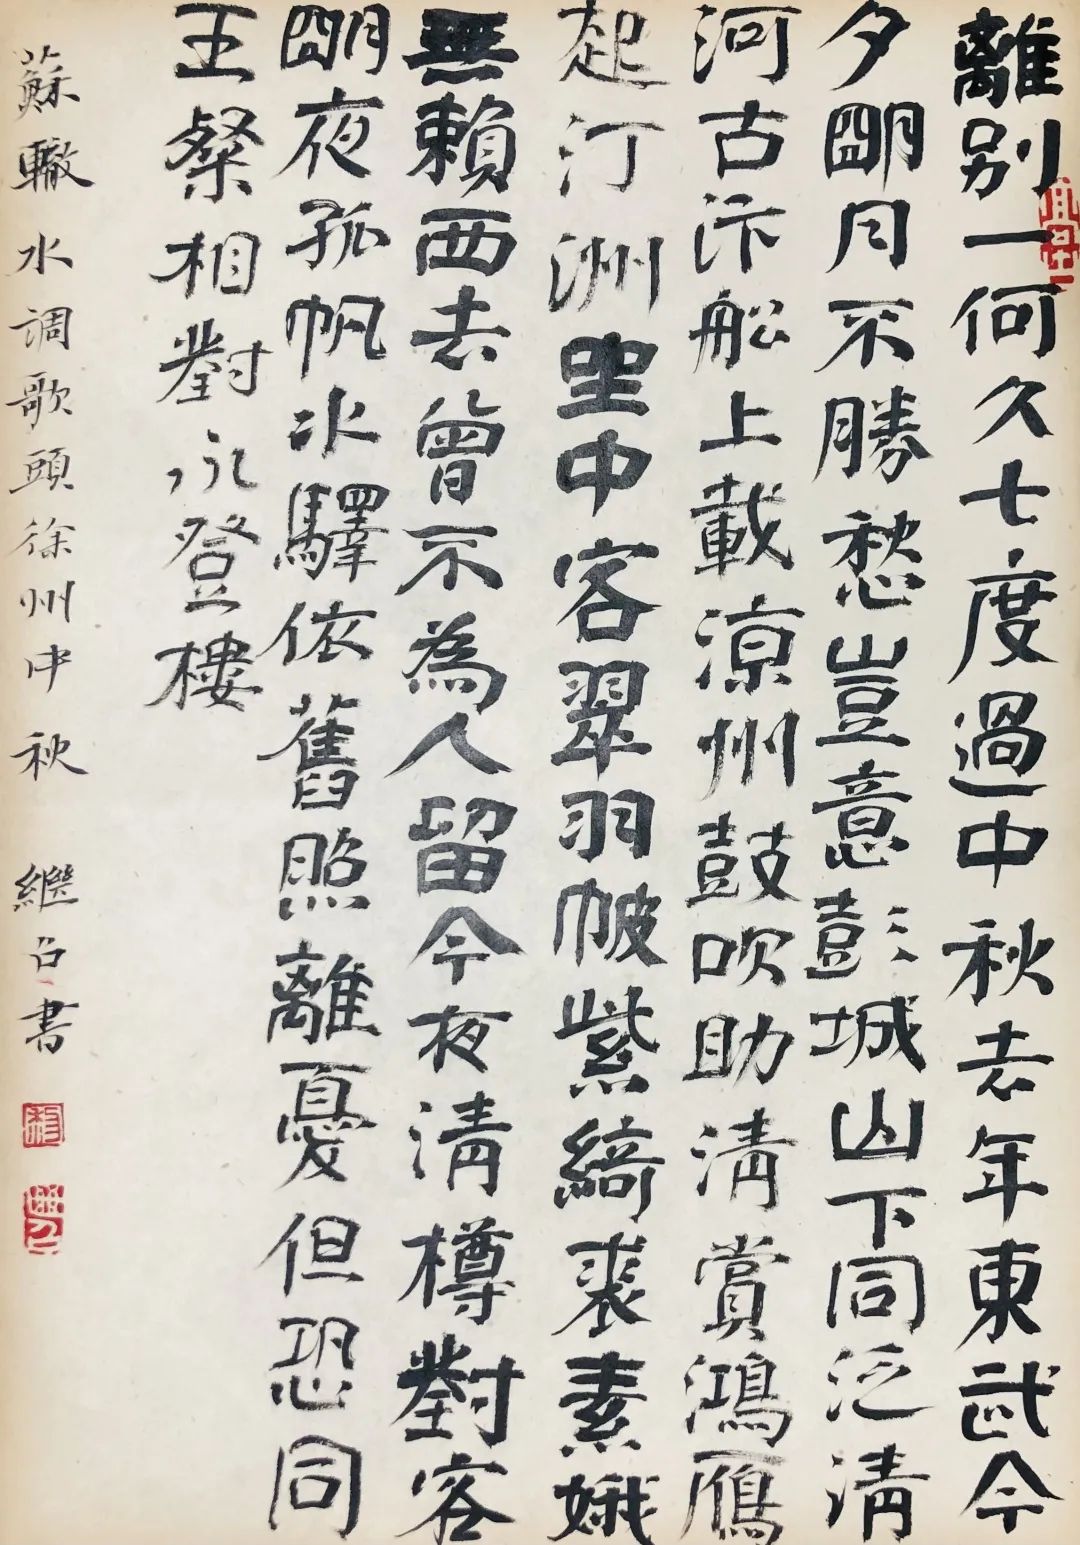 離別一何久七度過中秋去年東武今
夕明月不勝愁豈意彭城山下同泛清
河古汴船上載涼州鼓吹助清賞鴻雁
起汀洲坐中客翠羽帔紫綺裘素娥
無賴西去曾不為人留今夜清樽對客
明夜孤帆水驛依舊照離憂但恐同
王粲相對永登樓
蘇轍水調歌頭徐州中秋 繼 書